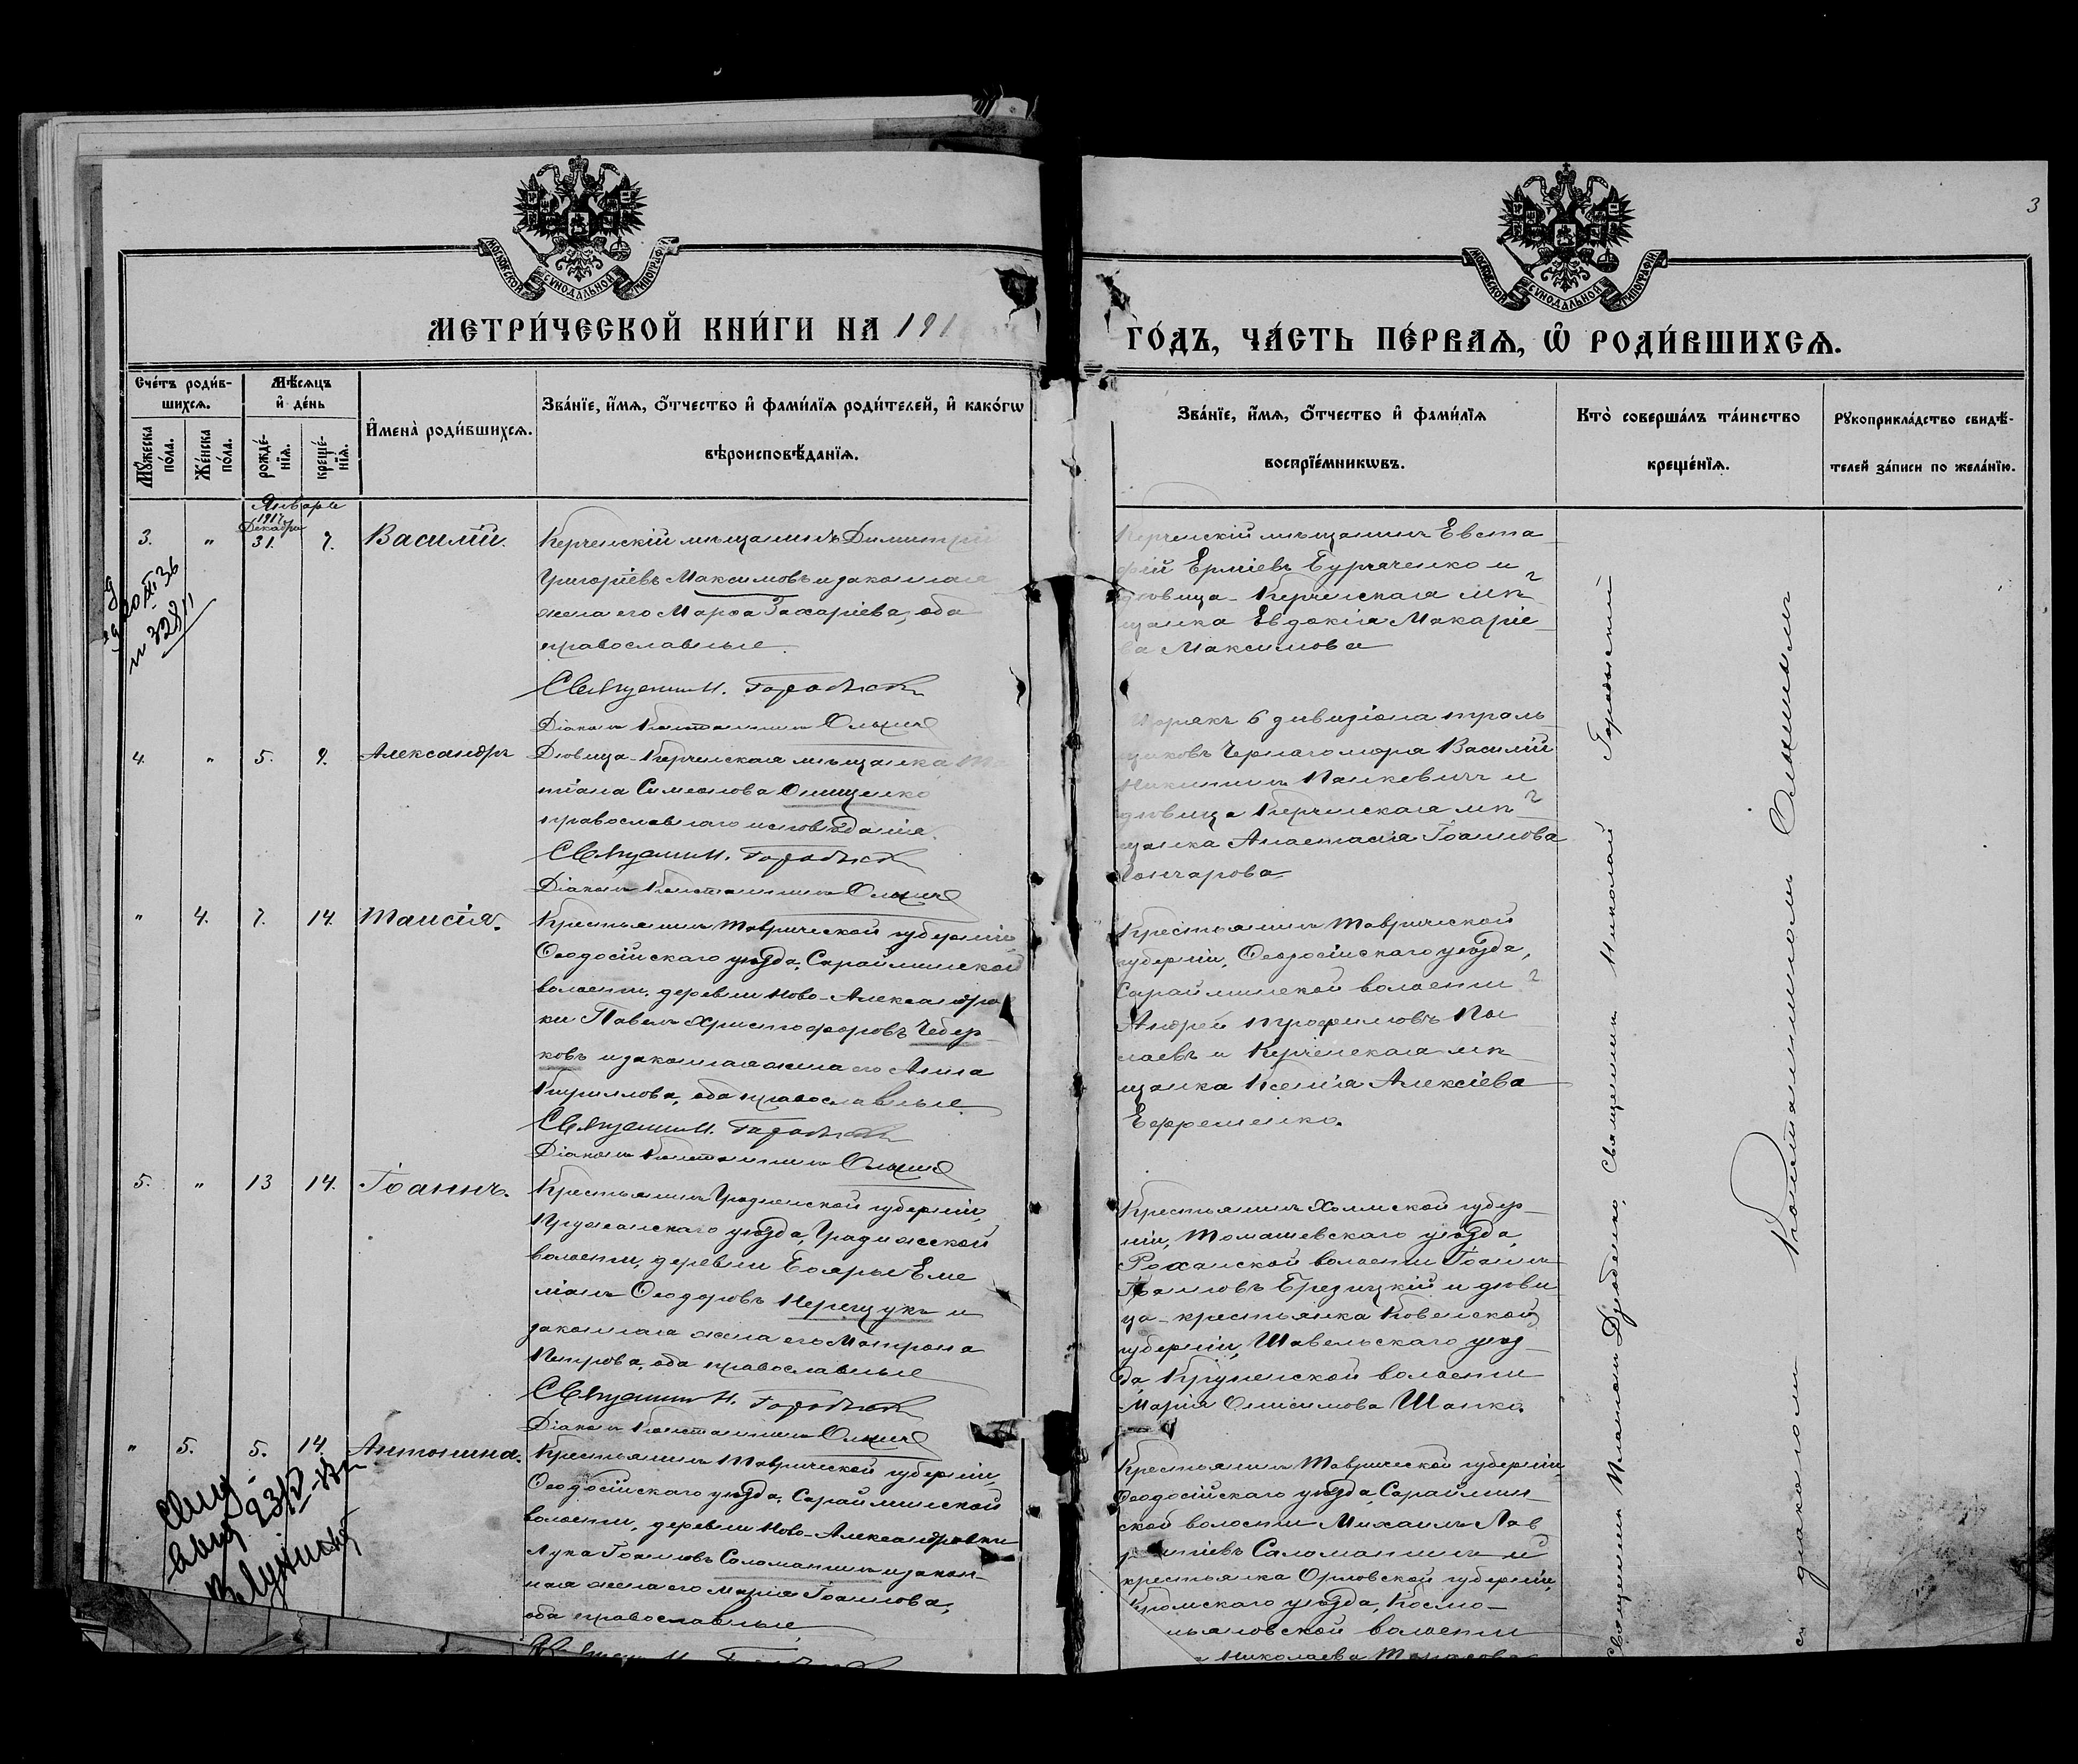 3
МОСКОВСКОЙ СУНОДАЛЬНОЙ ТИПОГРАФІИ
МОСКОВСКОЙ СУНОДАЛЬНОЙ ТИПОГРАФІИ
МЕТРИ́ЧЕСКОЙ КНИ́ГИ НА 191
ГО́ДЪ, ЧА́СТЬ ПЕ́РВАѦ, Ѡ҆ РОДИ́ВШИХСѦ.
Сче́тъ роди́в-
шихсѧ.
Мꙋ́жеска по́ла.
Же́нска по́ла.
Мѣ́сѧцъ
и҆ де́нь
рожде́-
нїѧ.
креще́-
нїѧ.
И҆мена̀ роди́вшихсѧ.
Зва́нїе, и҆́мѧ, ѻ҆́тчество и҆ фами́лїѧ роди́телей, и҆ како́гѡ
вѣроисповѣ́данїѧ.
Зва́нїе, и҆́мѧ, ѻ҆́тчество и҆ фами́лїѧ
воспрїе́мникѡвъ.
Кто̀ соверша́лъ та́инство
креще́нїѧ.
Рꙋкоприкла́дство свидѣ́-
телей за́писи по жела́нїю.
Января
1914
Декабря
3. " 31. 7. Василій.
Керченскій мѣщанинъ Димитрій
Григоріевъ Максимовъ и законная
жена его Марѳа Захаріева, оба
православные.
Священник Н. Городыскій
Діаконъ Константинъ Ольшич
Керченскій мѣщанинъ Евста-
фій Ерміевъ Бурчаченко и
дѣвица - Керченская мѣ-
щанка Евдокія Макаріе-
ва Максимова
4. " 5. 9. Александръ
Дѣвица - Керченская мѣщанка
тіана Симеонова Онищенко
православнаго исповѣданія.
Священник Н. Городыскій
Діаконъ Константинъ Ольшич
6 дивизіона траль-
щиковъ Чернаго моря Василій
Никитинъ Панкевичъ и
дѣвица Керченская мѣ-
щанка Анастасія Іоаннова
Гончарова
" 4. 7. 14. Таисія.
Крестьянинъ Таврической губерніи
Ѳеодосійскаго уѣзда, Сарайминской
волости, деревни Ново-Александров
ки Павелъ Христофоровъ Чебер-
ковъ и законная жена его Анна
Кириллова, оба православные
Священник Н. Городыскій
Діаконъ Константинъ Ольшич
Крестьянинъ Таврической
губерніи, Ѳеодосійскаго уѣзда,
Сарайминской волости
Андрей Трофимовъ
и Керченская мѣ-
щанка Ксенія Алексіева
Ефременко.
5. " 13 14. Іоаннъ.
Крестьянинъ Гродненской губерніи,
Пружанскаго уѣзда,
волости, деревни Бояры Еме
ліанъ Ѳеодоровъ и
законная жена его Матрона
Петрова, оба православные
Священник Н. Городыскій
Діаконъ Константинъ Ольшич
Крестьянинъ Холмской губер-
ніи, Томашевскаго уѣзда,
волости Іоаннъ
Іоанновъ Брезицкій и дѣви
ца - крестьянка Ковенской
губерніи, Шавельскаго уѣз-
да, волости
Марія Онисимова Шапка.
" 5. 5. 14. Антонина.
Крестьянинъ Таврической губерніи,
Ѳеодосійскаго уѣзда, Сарайминской
волости, деревни Ново-Александровки
Лука Іоанновъ Саломатинъ и закон-
ная жена его Марія Іоаннова,
оба православные
Крестьянинъ Таврической губерніи,
Ѳеодосійскаго уѣзда, Сараймин-
ской волости Михаилъ Лав
Саломатинъ и
крестьянка Орловской губерніи,
Кромскаго уѣзда, Космо-
волости
Николаева
Священник Платон Дзюбенко, Священник Николай Городыскій
съ діакономъ Константиномъ Ольшичемъ